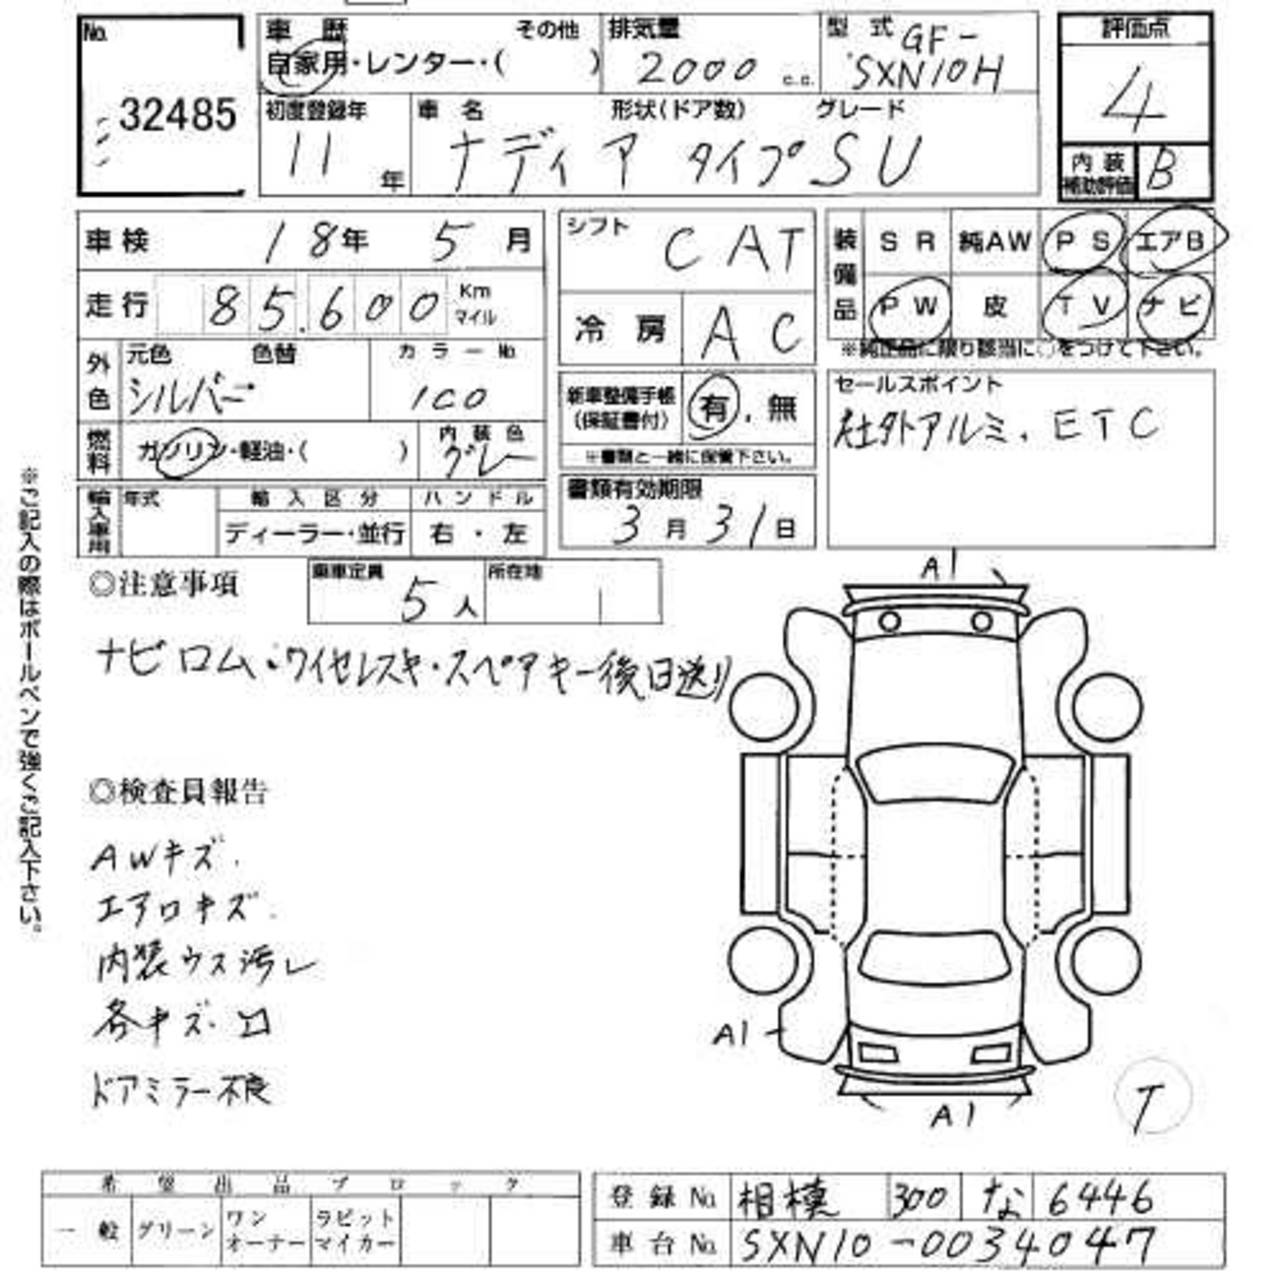 No. 32485
車歴 その他
自家用・レンター・( )
排気量 2000 c.c.
型式 GF- SXN10H
評価点 4
内装補助評価 B
初度登録年 11年
車名 形状(ドア数) グレード
ナディア タイプSU
車検 18年 5月
走行 85.600 Km マイル
外色 元色 色替 カラーNo.
シルバー 1C0
燃料 ガソリン・軽油・( )
内装色 グレー
輸入車用 年式 輸入区分 ハンドル
ディーラー・並行 右・左
シフト CAT
冷房 AC
新車整備手帳(保証書付) 有. 無
※書類と一緒に保管下さい。
書類有効期限
3月31日
装備品 SR 純AW PS エアB
PW 皮 TV ナビ
※純正品に限り該当に○をつけて下さい。
セールスポイント
社外アルミ. ETC
※ご記入の際はボールペンで強くご記入下さい。
◎注意事項
乗車定員 5人
所在地
ナビロム・ワイヤレスキー・スペアキー後日送り
A1
◎検査員報告
AWキズ.
エアロキズ.
内装ウス汚レ
各キズ. 凹
ドアミラー不良
A1
A1
T
希望出品ブロック
一般 グリーン ワンオーナー ラビットマイカー
登録No. 相模 300 な 6446
車台No. SXN10-0034047